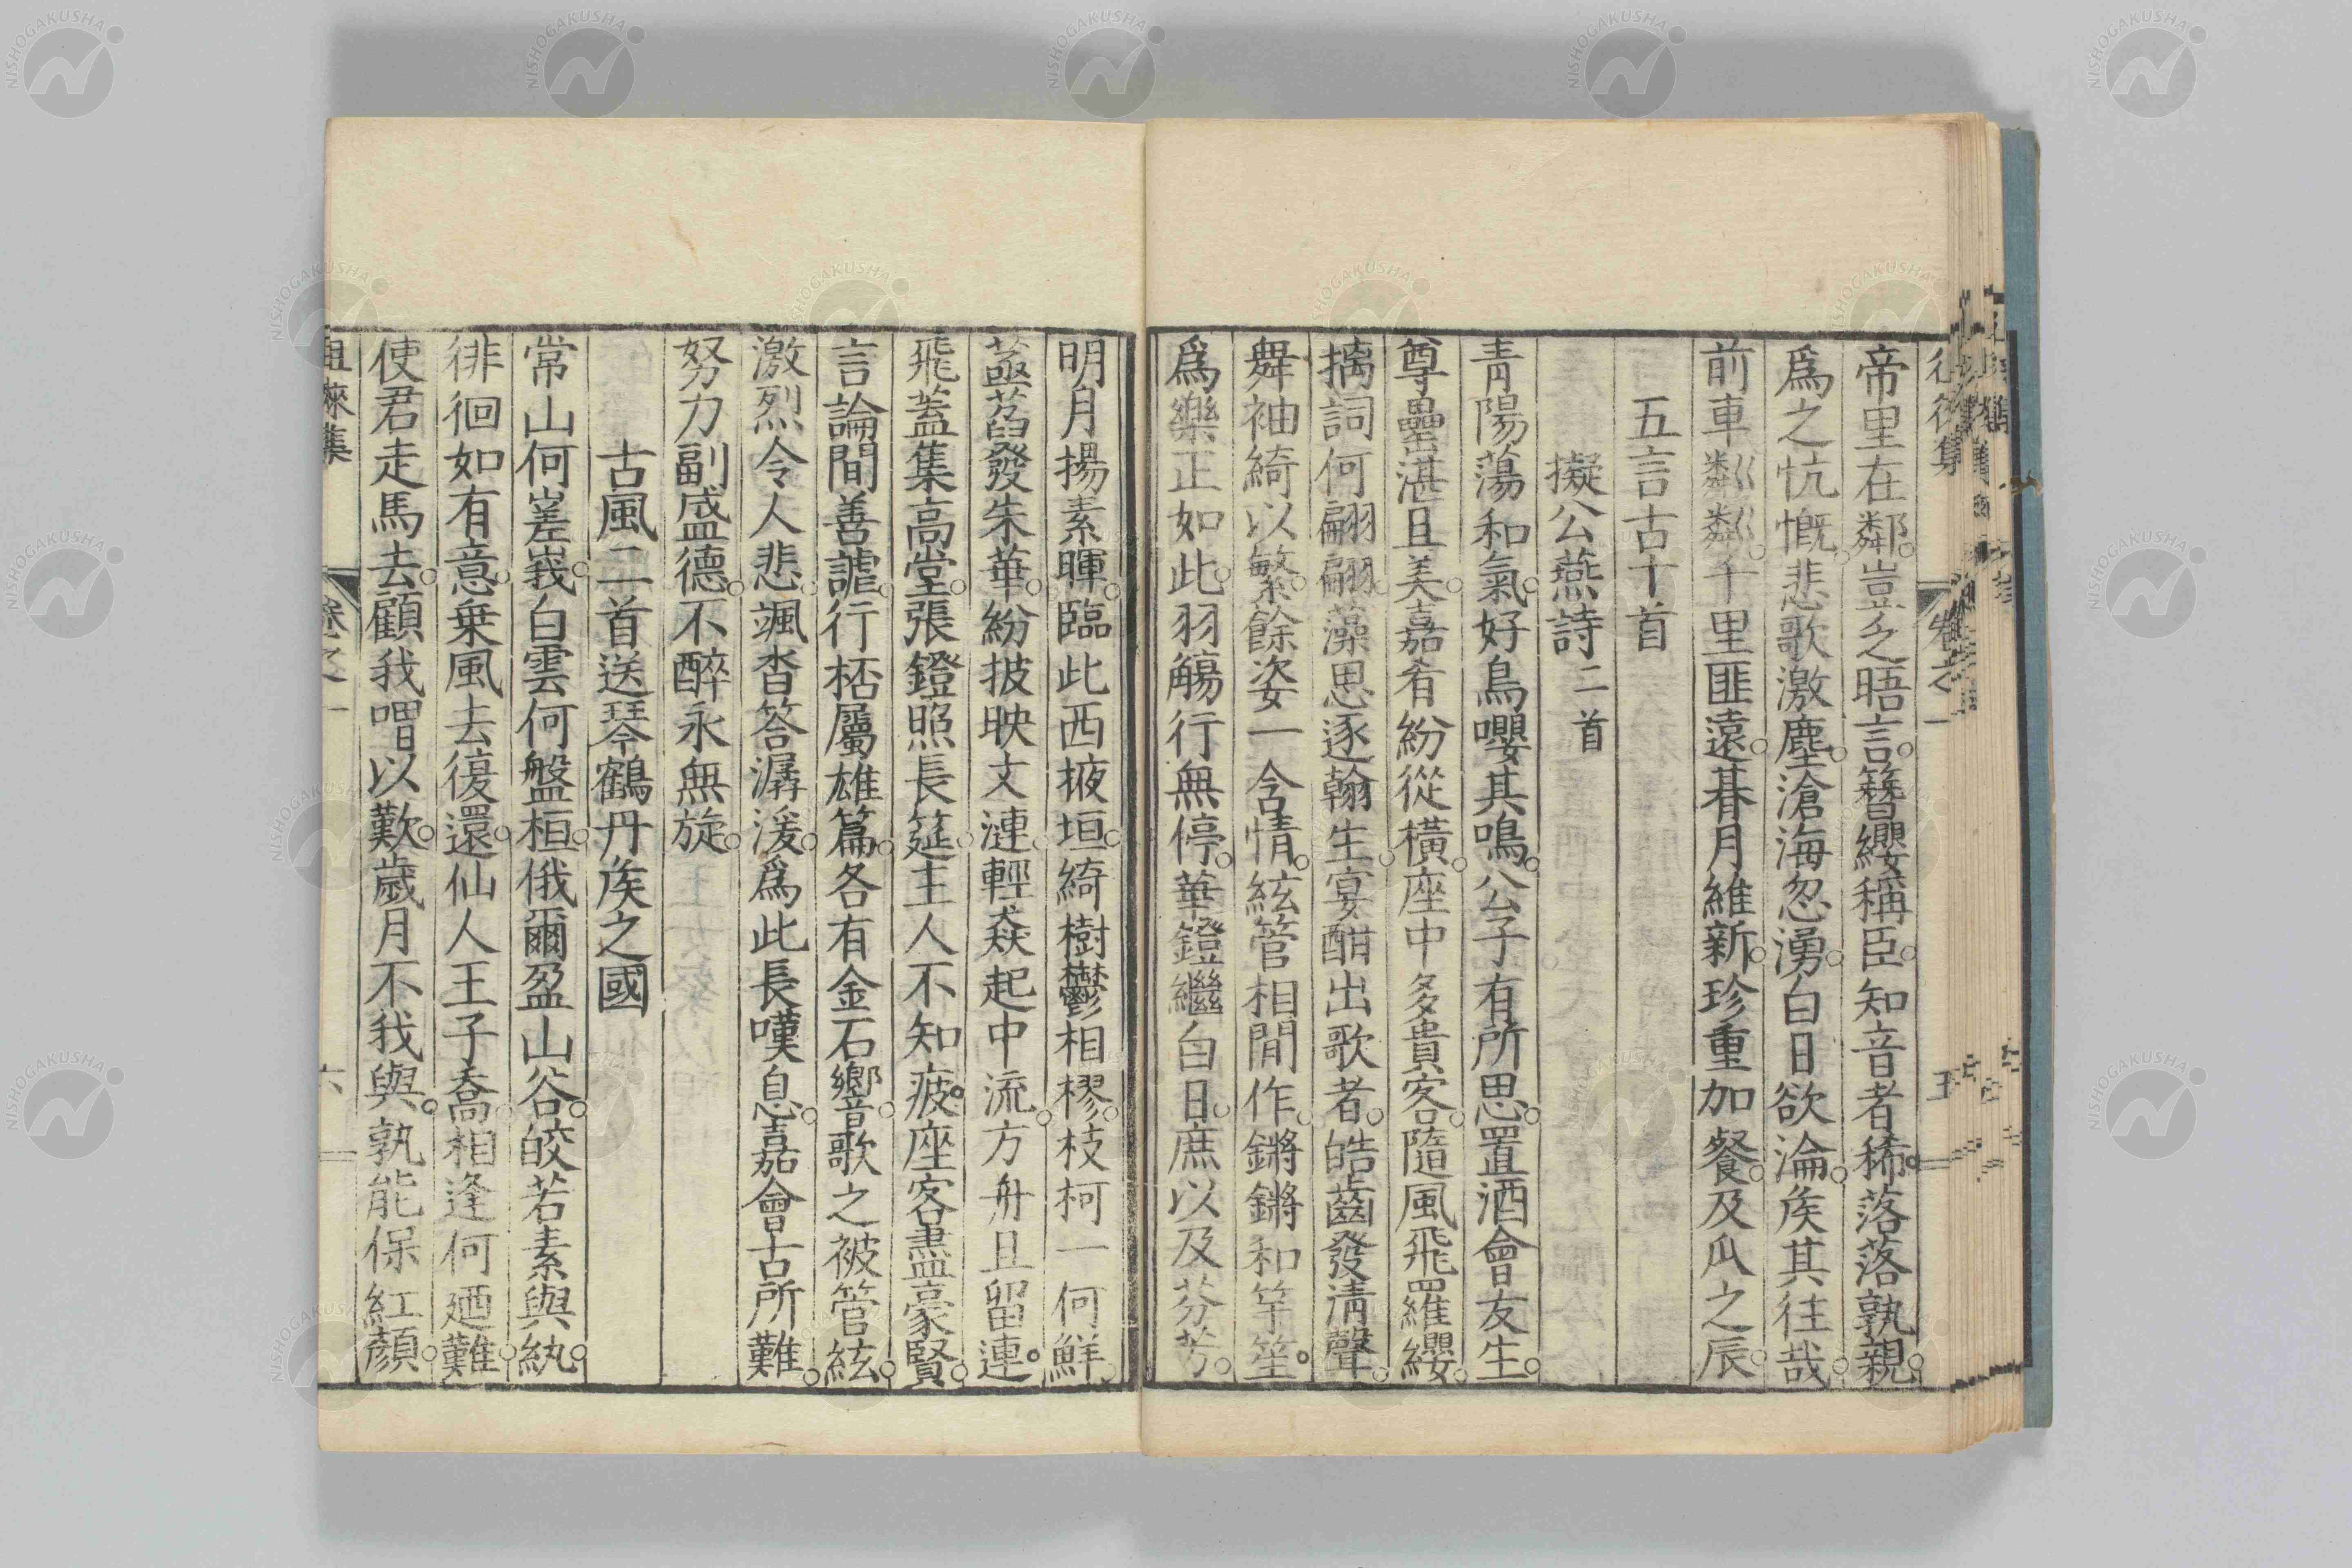 帝里在鄰。豈乏晤言。簪纓稱臣。知音者稀。落落孰親。
爲之忼慨。悲歌激塵。滄海忽湧。白日欲淪。矦其往哉。
前車粼粼。千里匪遠。朞月維新。珍重加餐。及瓜之辰。
五言古十首
擬公燕詩二首
青陽蕩和氣。好鳥嚶其鳴。公子有所思。置酒會友生。
尊罍湛且美。嘉肴紛從橫。座中多貴客。隨風飛羅纓。
摛詞何翩翩。藻思逐翰生。宴酣出歌者。皓齒發淸聲。
舞袖綺以繁。餘姿一含情。絃管相間作。鏘鏘和竽笙。
爲樂正如此。羽觴行無停。華鐙繼白日。庶以及芬芳。
明月揚素暉。臨此西掖垣。綺樹鬱相樛。枝柯一何鮮。
菡萏發朱華。紛披映文漣。輕猋起中流。方舟且留連。
飛蓋集高堂。張鐙照長筵。主人不知疲。座客盡豪賢。
言論間善謔。行桮屬雄篇。各有金石響。歌之被管絃。
激烈令人悲。颯沓答潺湲。爲此長嘆息。嘉會古所難。
努力副盛德。不醉永無旋。
古風二首送琴鶴丹矦之國
常山何嵳峩。白雲何盤桓。俄爾盈山谷。皎若素與紈。
徘徊如有意。乗風去復還。仙人王子喬。相逢何廼難。
使君走馬去。顧我喟以歎。歲月不我與。孰能保紅顏。
徂徠集
卷之一
六